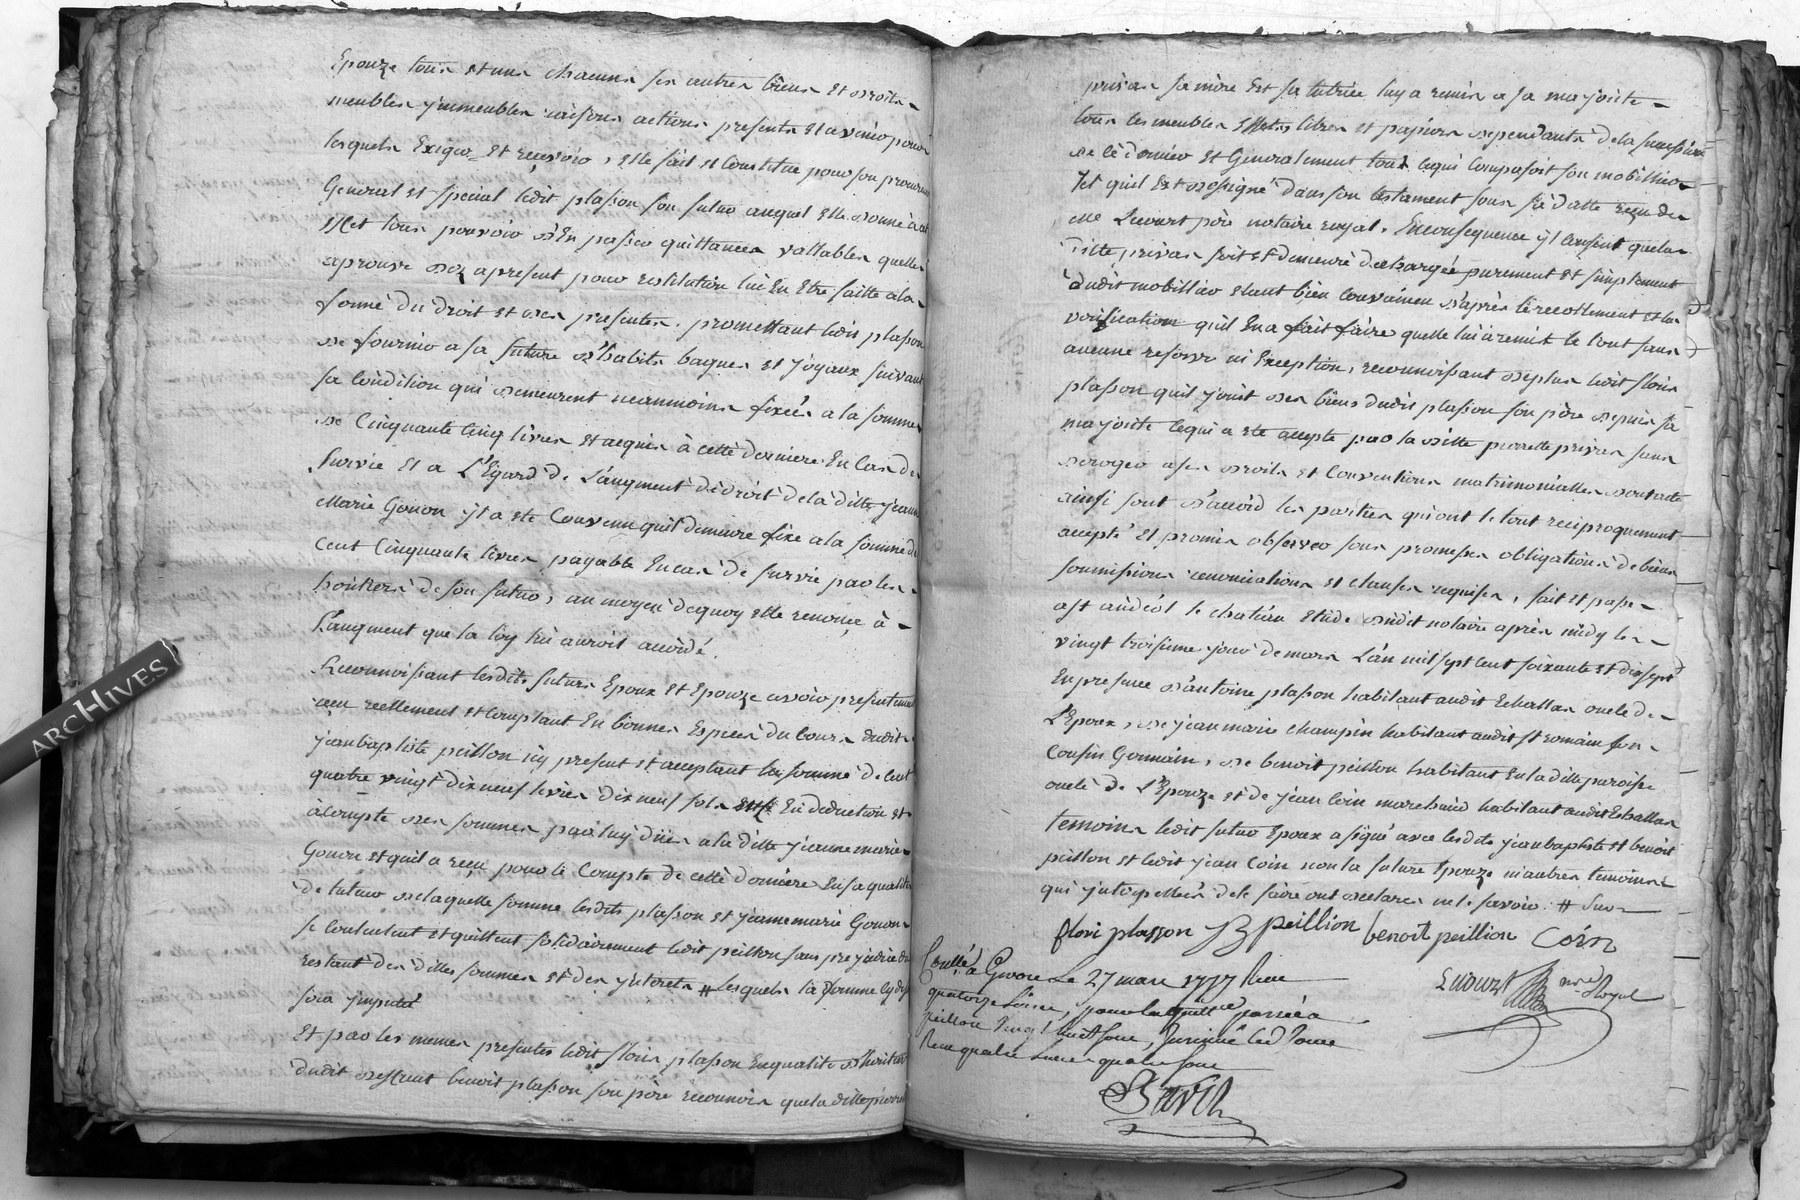 Epouze tous et uns chacuns ses autres biens et droits
meubles ymmeubles raisons actions presents et avenir pour
lesquels Exiger et recevoir, elle fait et Constitue pour son procureur
General et special ledit plasson son futur auquel elle donne à cet
Effet tous pouvoir d'En passer quittances vallables quelle
aprouve dez apresent pour restitution lui En Etre faitte à la
forme du droit et des presentes. promettant ledit plasson
de fournir a sa future d'habits bagues et joyaux suivant
sa Condition qui demeurent neanmoins fixés a la somme
de Cinquante Cinq livres et acquis à cette derniere En Cas de
survie Et a L'Egard de L'augment de droit de la ditte jeanne
Marie Gonon yl a ete Convenu quil demeure fixe a la somme de
Cent Cinquante livres payable En cas de survie par les
héritiers de son futur, au moyen dequoy elle renonce à
L'augment que la loy lui auroit accordé.
Reconnoissant lesdits futurs Epoux et Epouze avoir presentement
reçu reellement et Comptant En bonnes Espèces du Cours dudit
jean baptiste peillon icy present et acceptant la somme de Cent
quatre vingt dix neuf livres dix neuf sols En deduction et
àcompte des sommes par luy düës a la ditte jeanne marie
Gonon et quil a reçu pour le Compte de cette derniere En sa qualité
de tuteur de laquelle somme lesdits plasson et jeanne marie Gonon
se Contentent et quittent solidairement ledit peillon sans prejudice du
restant des dittes sommes et des ynterets # lesquels la somme cy dessus
sera ymputé
Et par les memes presentes ledit floris plasson En qualité d'heritier
dudit deffunt benoit plasson son père reconnoit que la ditte pierrette
privas sa mère Et sa tutrice luy a remis a sa majorité
tous les meubles Effets titres et papiers dependants de la succession
de ce dernier et Generalement tout ce qui Composoit son mobillier
tel quil Est designé dans son testament sous sa datte reçu de
me Lucourt père notaire royal. En consequence yl Consent que la
ditte privas soit et demeure dechargée purement et simplement
dudit mobillier etant bien Convaincu d'après le recollement et la
verification quil En a fait faire quelle lui à remis le tout sans
aucune reserve ni Exception, reconnoissant deplus ledit floris
plasson quil jouit des biens dudit plasson son père depuis sa
majorité ce qui a ete accepte par la ditte pierrette privas sans
deroger a ses droits et Conventions matrimonialles
ainsi sont d'accord les parties qui ont le tout reciproquement
accepté Et promis observer sous promesses obligations de biens
soumissions renonciations et clauses requises, fait et passé
a st andéol le chateau Etude dudit notaire après midy le
vingt troisième jour de mars L'an mil sept cent soixante et dix sept
En presence d'antoine plasson habitant audit Echallas oncle de
L'Epoux, de jean marie champin habitant audit st romain son
Cousin Germain, de benoit peillon habitant En la ditte paroisse
oncle de L'Epouze et de jean Coin marchand habitant audit Echallas
temoins ledit futur Epoux a signé avec lesdits jean baptiste et benoit
peillon et ledit jean Coin non la future Epouze ni autres temoins
qui ynterpellés de le faire ont declarés ne le savoir. # Sur
flori plasson JB peillion benoit peillion Coin
Lucourt nre Royal
Conllé a Givors Le 27 mars 1777 Reçu
quatorze Livres, pour la quittce passée a
peillon vingt huit sous,
Reçu quatre Livres quatre sous